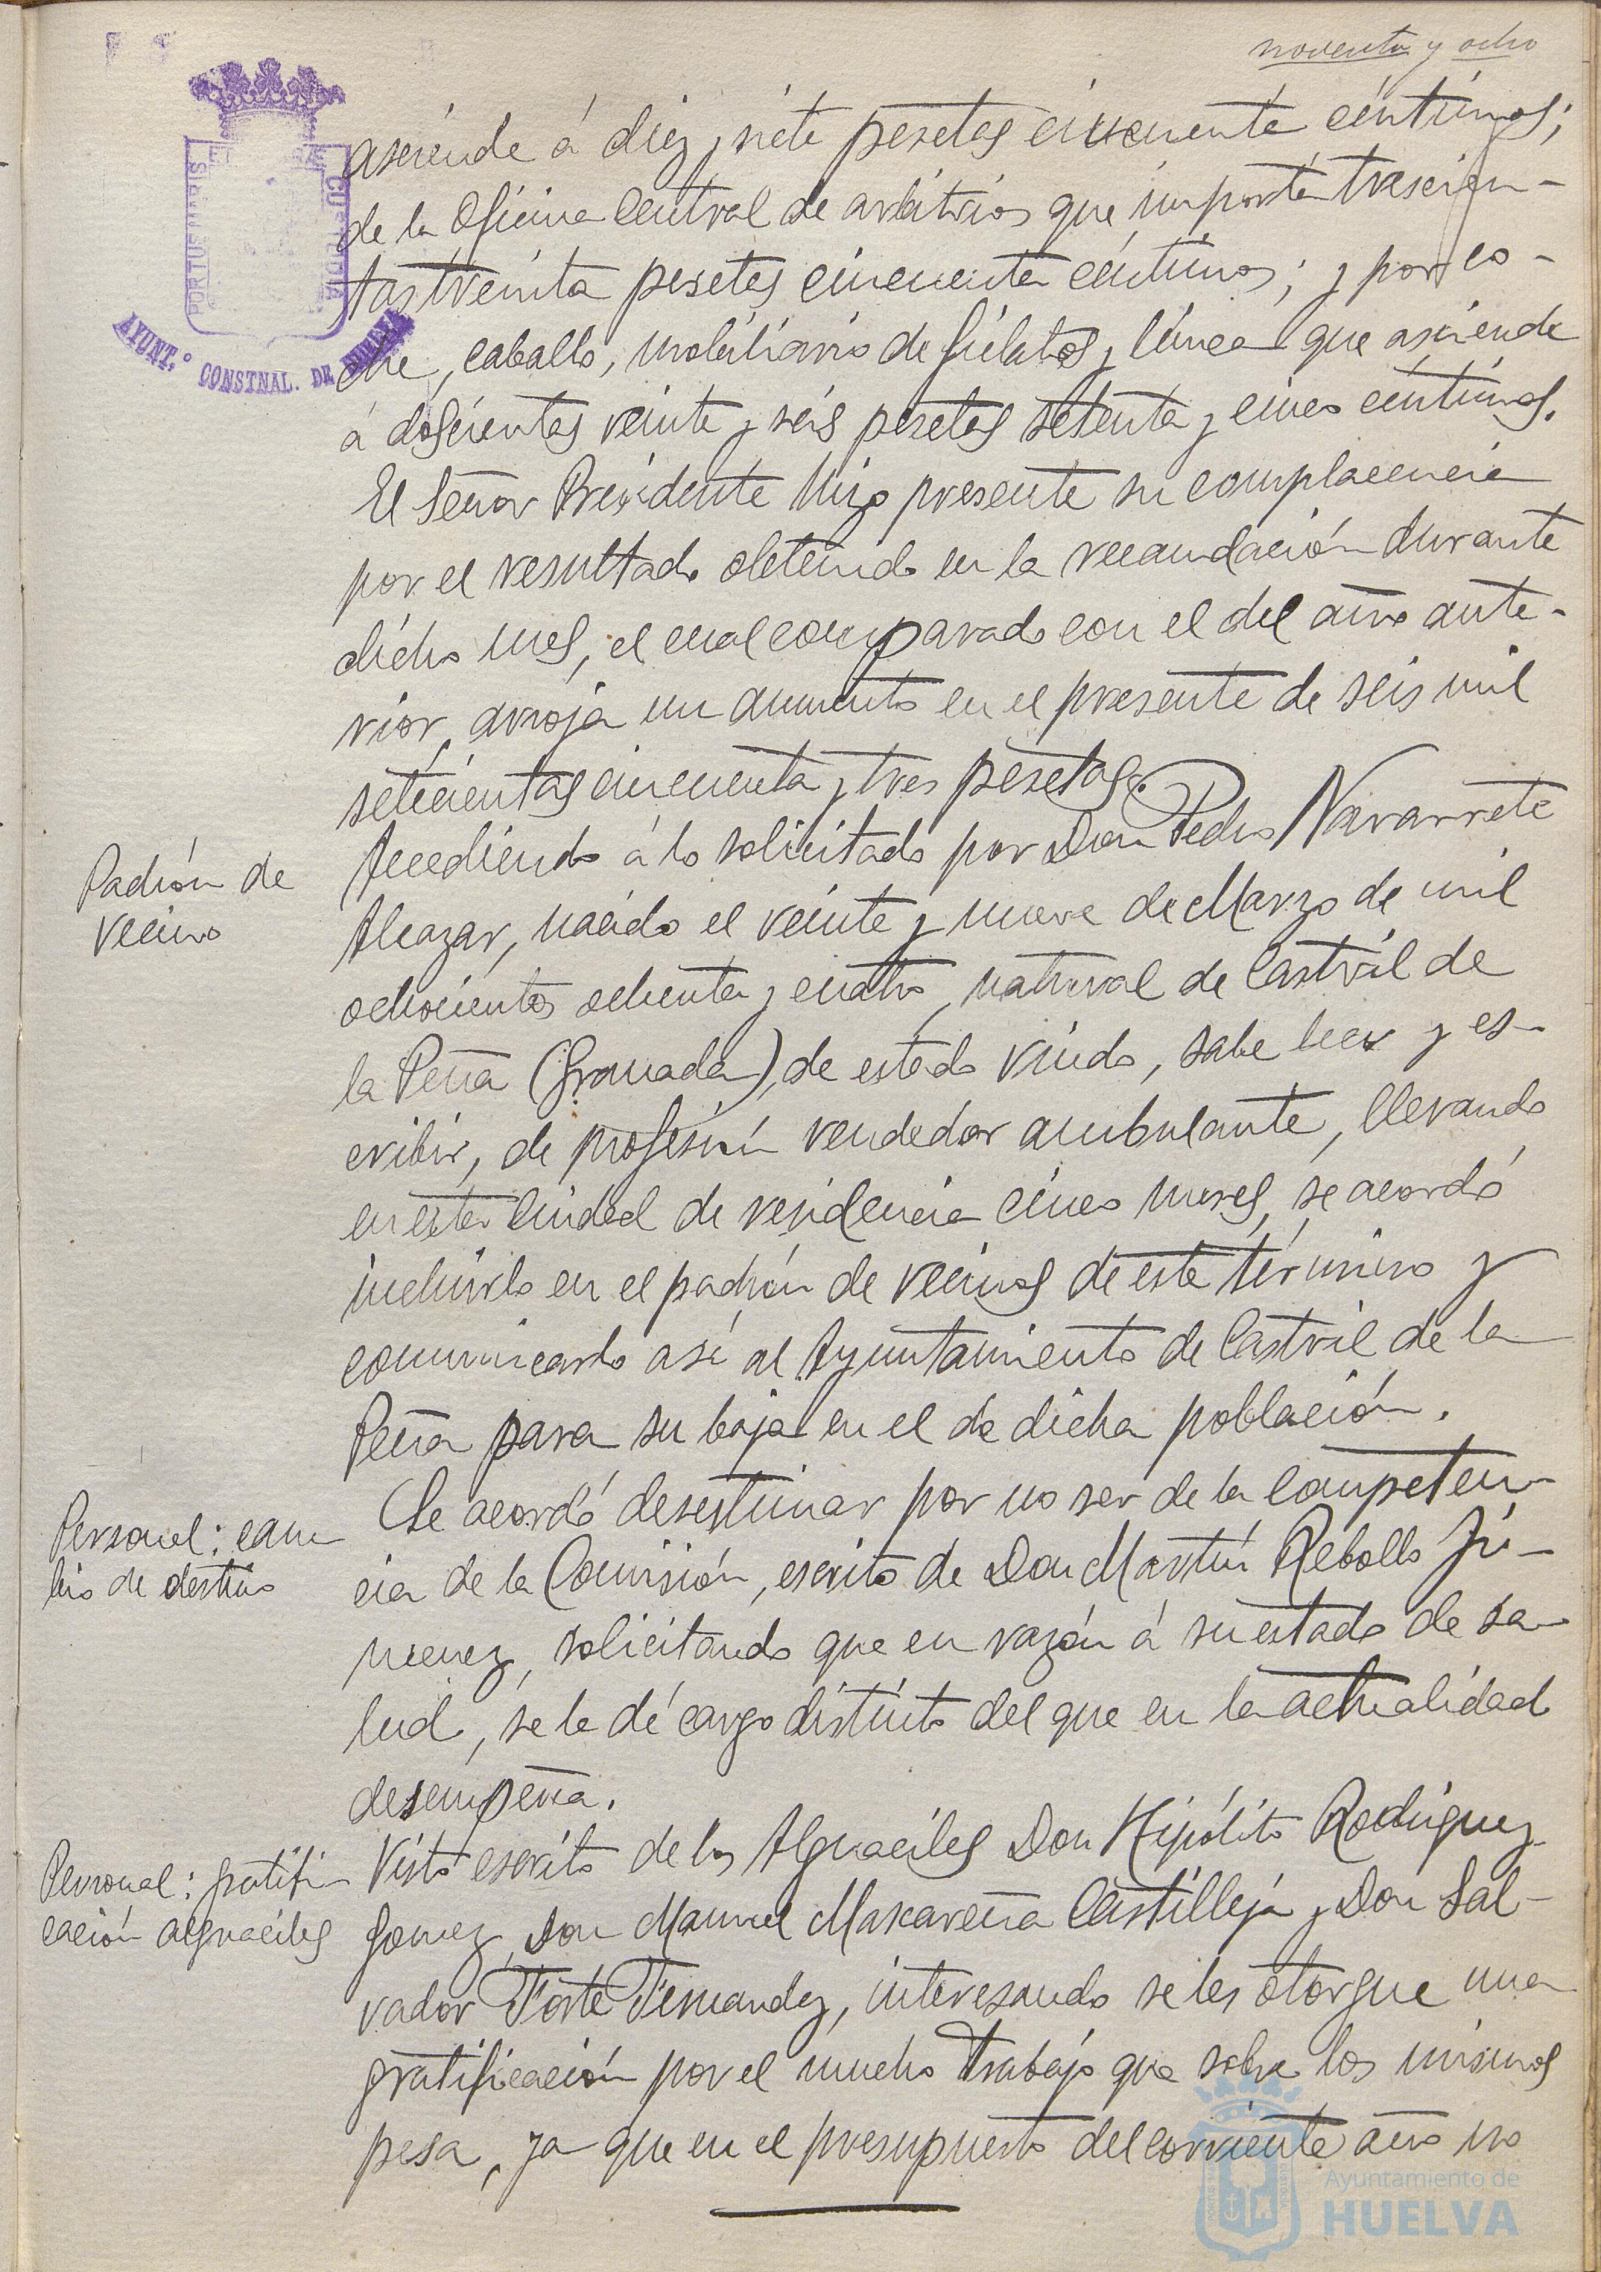 noventa y ocho
PORTUS MARIS ET TERRAE CUSTODIA
AYUNT.º CONSTNAL. DE HUELVA
asciende á diez y siete pesetas cincuenta céntimos;
de la Oficina Central de arbitrios que importa trescien-
tas treinta pesetas cincuenta céntimos; y por co-
che, caballo, mobiliario de fielatos y línea que asciende
á doscientas veinte y seis pesetas setenta y cinco céntimos.
El Señor Presidente hizo presente su complacencia
por el resultado obtenido en la recaudación durante
dicho mes, el cual comparado con el del año ante-
rior, arroja un aumento en el presente de seis mil
setecientas cincuenta y tres pesetas.
Padrón de
vecino
Accediendo á lo solicitado por Don Pedro Navarrete
Alcazar, nacido el veinte y nueve de Marzo de mil
ochocientos ochenta y cuatro, natural de Castril de
la Peña (Granada), de estado viudo, sabe leer y es-
cribir, de profesión vendedor ambulante, llevando
en esta Ciudad de residencia cinco meses, se acordó
incluirlo en el padrón de vecinos de este término y
comunicarlo así al Ayuntamiento de Castril de la
Peña para su baja en el de dicha población.
Personal: cam
bio de destino
Se acordó desestimar por no ser de la competen-
cia de la Comisión, escrito de Don Martín Rebollo Ji-
menez, solicitando que en razón á su estado de sa-
lud, se le dé cargo distinto del que en la actualidad
desempeña.
Personal: gratifi-
cación alguaciles
Visto escrito de los Alguaciles Don Hipólito Rodriguez
Gomez, Don Manuel Mascareña Castilleja y Don Sal-
vador Forte Fernandez, interesando se les otorgue una
gratificación por el mucho trabajo que sobre los mismos
pesa, ya que en el presupuesto del corriente año no
Ayuntamiento de
HUELVA